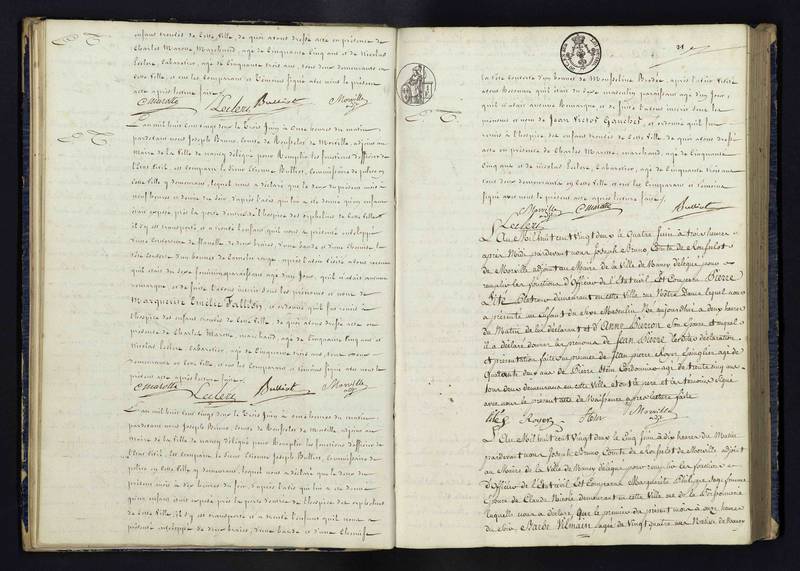 enfans trouvés de cette Ville, de quoi avons dressé acte en présence de
Charles Marotte Marchand, agé de Cinquante Cinq ans et de Nicolas
Leclerc, Cabaretier, agé de Cinquante trois ans, tous deux demeurants en
cette Ville et ont les Comparant et témoins signé avec nous le présent
acte après lecture faite
C marotte Leclerc Bulliot Morville
L'an mil huit Cent vingt deux le trois Juin à onze heures du matin
pardevant nous Joseph Bruno, Comte de Ronfselot de Morville, adjoint au
maire de la Ville de nancy délégué pour Remplir les fonctions d'officier
de l'état Civil, est comparu le Sieur Etienne Bulliot, Commissaire de police en
cette Ville y demeurant, lequel nous a déclaré que le deux du présent mois à
neuf heures du soir, d'après l'avis qui lui a été donné qu'un enfant
était exposé près la porte de l'hospice des orphelins de cette Ville
il s'y est transporté et a trouvé l'enfant qu'il nous a présenté enveloppé
d'une Couverture de flanelle, de deux braies, d'une bande et d'une Chemise la
tête Couverte d'un bonnet de Comelise rouge, après l'avoir visité avons reconnu
qu'il était du sexe féminin paraissant agé d'un Jour, qu'il n'avait aucune
remarque et de suite l'avons inscrit sous les prénoms et nom de
Marguerite Emélie Fallion, et ordonné qu'il fut remis à
l'hospice des enfans trouvés de cette Ville, de quoi avons dressé acte en
présence de Charles Marotte, marchand, agé de Cinquante Cinq ans et
Nicolas Leclerc, Cabaretier, agé de Cinquante trois ans, tous deux
demeurants en cette Ville, et ont les Comparant et témoins signé avec nous le
présent acte après lecture faite
C marotte Leclerc Bulliot Morville
L'an mil huit Cent vingt deux le trois Juin à onze heures du matin
pardevant nous Joseph Bruno, Comte de Ronfselot de Morville, adjoint au
maire de la Ville de nancy délégué pour Remplir les fonctions d'officier de
l'état Civil, est comparu le Sieur Etienne Joseph Bulliot, Commissaire de
police en cette Ville y demeurant, lequel nous a déclaré que le deux du
présent mois à dix heures du soir, d'après l'avis qui lui a été donné
qu'un enfant était exposé près la porte de l'hospice des orphelins
de cette Ville, il s'y est transporté et a trouvé l'enfant qu'il nous a
présenté enveloppé de deux braies, d'une bande et d'une Chemise
21
la tête Couverte d'un bonnet de Mousseline Brodée, après l'avoir Visité
avons Reconnu qu'il était du sexe masculin paraissant agé d'un Jour,
qu'il n'avait aucune Remarque et de suite l'avons inscrit sous les
prénoms et nom de Jean Victor Gauchet, et ordonné qu'il fut
remis à l'hospice des enfans trouvés de cette Ville, de quoi avons dressé
acte en présence de Charles Marotte, marchand, agé de Cinquante
Cinq ans et de nicolas Leclerc, Cabaretier, agé de Cinquante trois ans
tous deux demeurants en cette Ville et ont les Comparant et témoins
signé avec nous le présent acte après lecture faite
Morville C marotte Bulliot
Leclerc
L'An Mil huit Cent Vingt deux le Quatre Juin à trois heures
après Midi pardevant nous Joseph Bruno Comte de Ronfselot
de Morville adjoint au Maire de la Ville de Nancy délégué pour
remplir les fonctions d'Officier de l'Etat civil Est Comparu Pierre
demeurant en cette Ville rue Notre Dame lequel nous
a présenté un Enfant du Sexe Masculin Né aujourd'hui à deux heures
du Matin de lui déclarant et d'Anne Son Epouse et auquel
il a déclaré donner les prénoms de Jean Pierre lesdites déclaration
et présentation faites en présence de Jean pierre Royer agé de
Quarante deux ans de Pierre Cordonnier agé de trente cinq ans
tous deux demeurans en cette Ville et ont le père et les témoins signé
avec nous le présent acte de Naissance après lecture faite
Royer Morville
L'An Mil huit Cent Vingt deux le Cinq Juin à dix heures du Matin
pardevant nous Joseph Bruno, Comte de Ronfselot de Morville adjoint
au Maire de la Ville de Nancy délégué pour remplir les fonctions
d'Officier de l'Etat civil Est Comparue Marguerite sage femme
Epouse de Claude Nicole demeurant en cette Ville rue de la Poissonnerie
laquelle nous a déclaré, Que le premier du présent mois à onze heures
du soir, Barbe Vilmain agée de Vingt quatre ans Native de Nancy